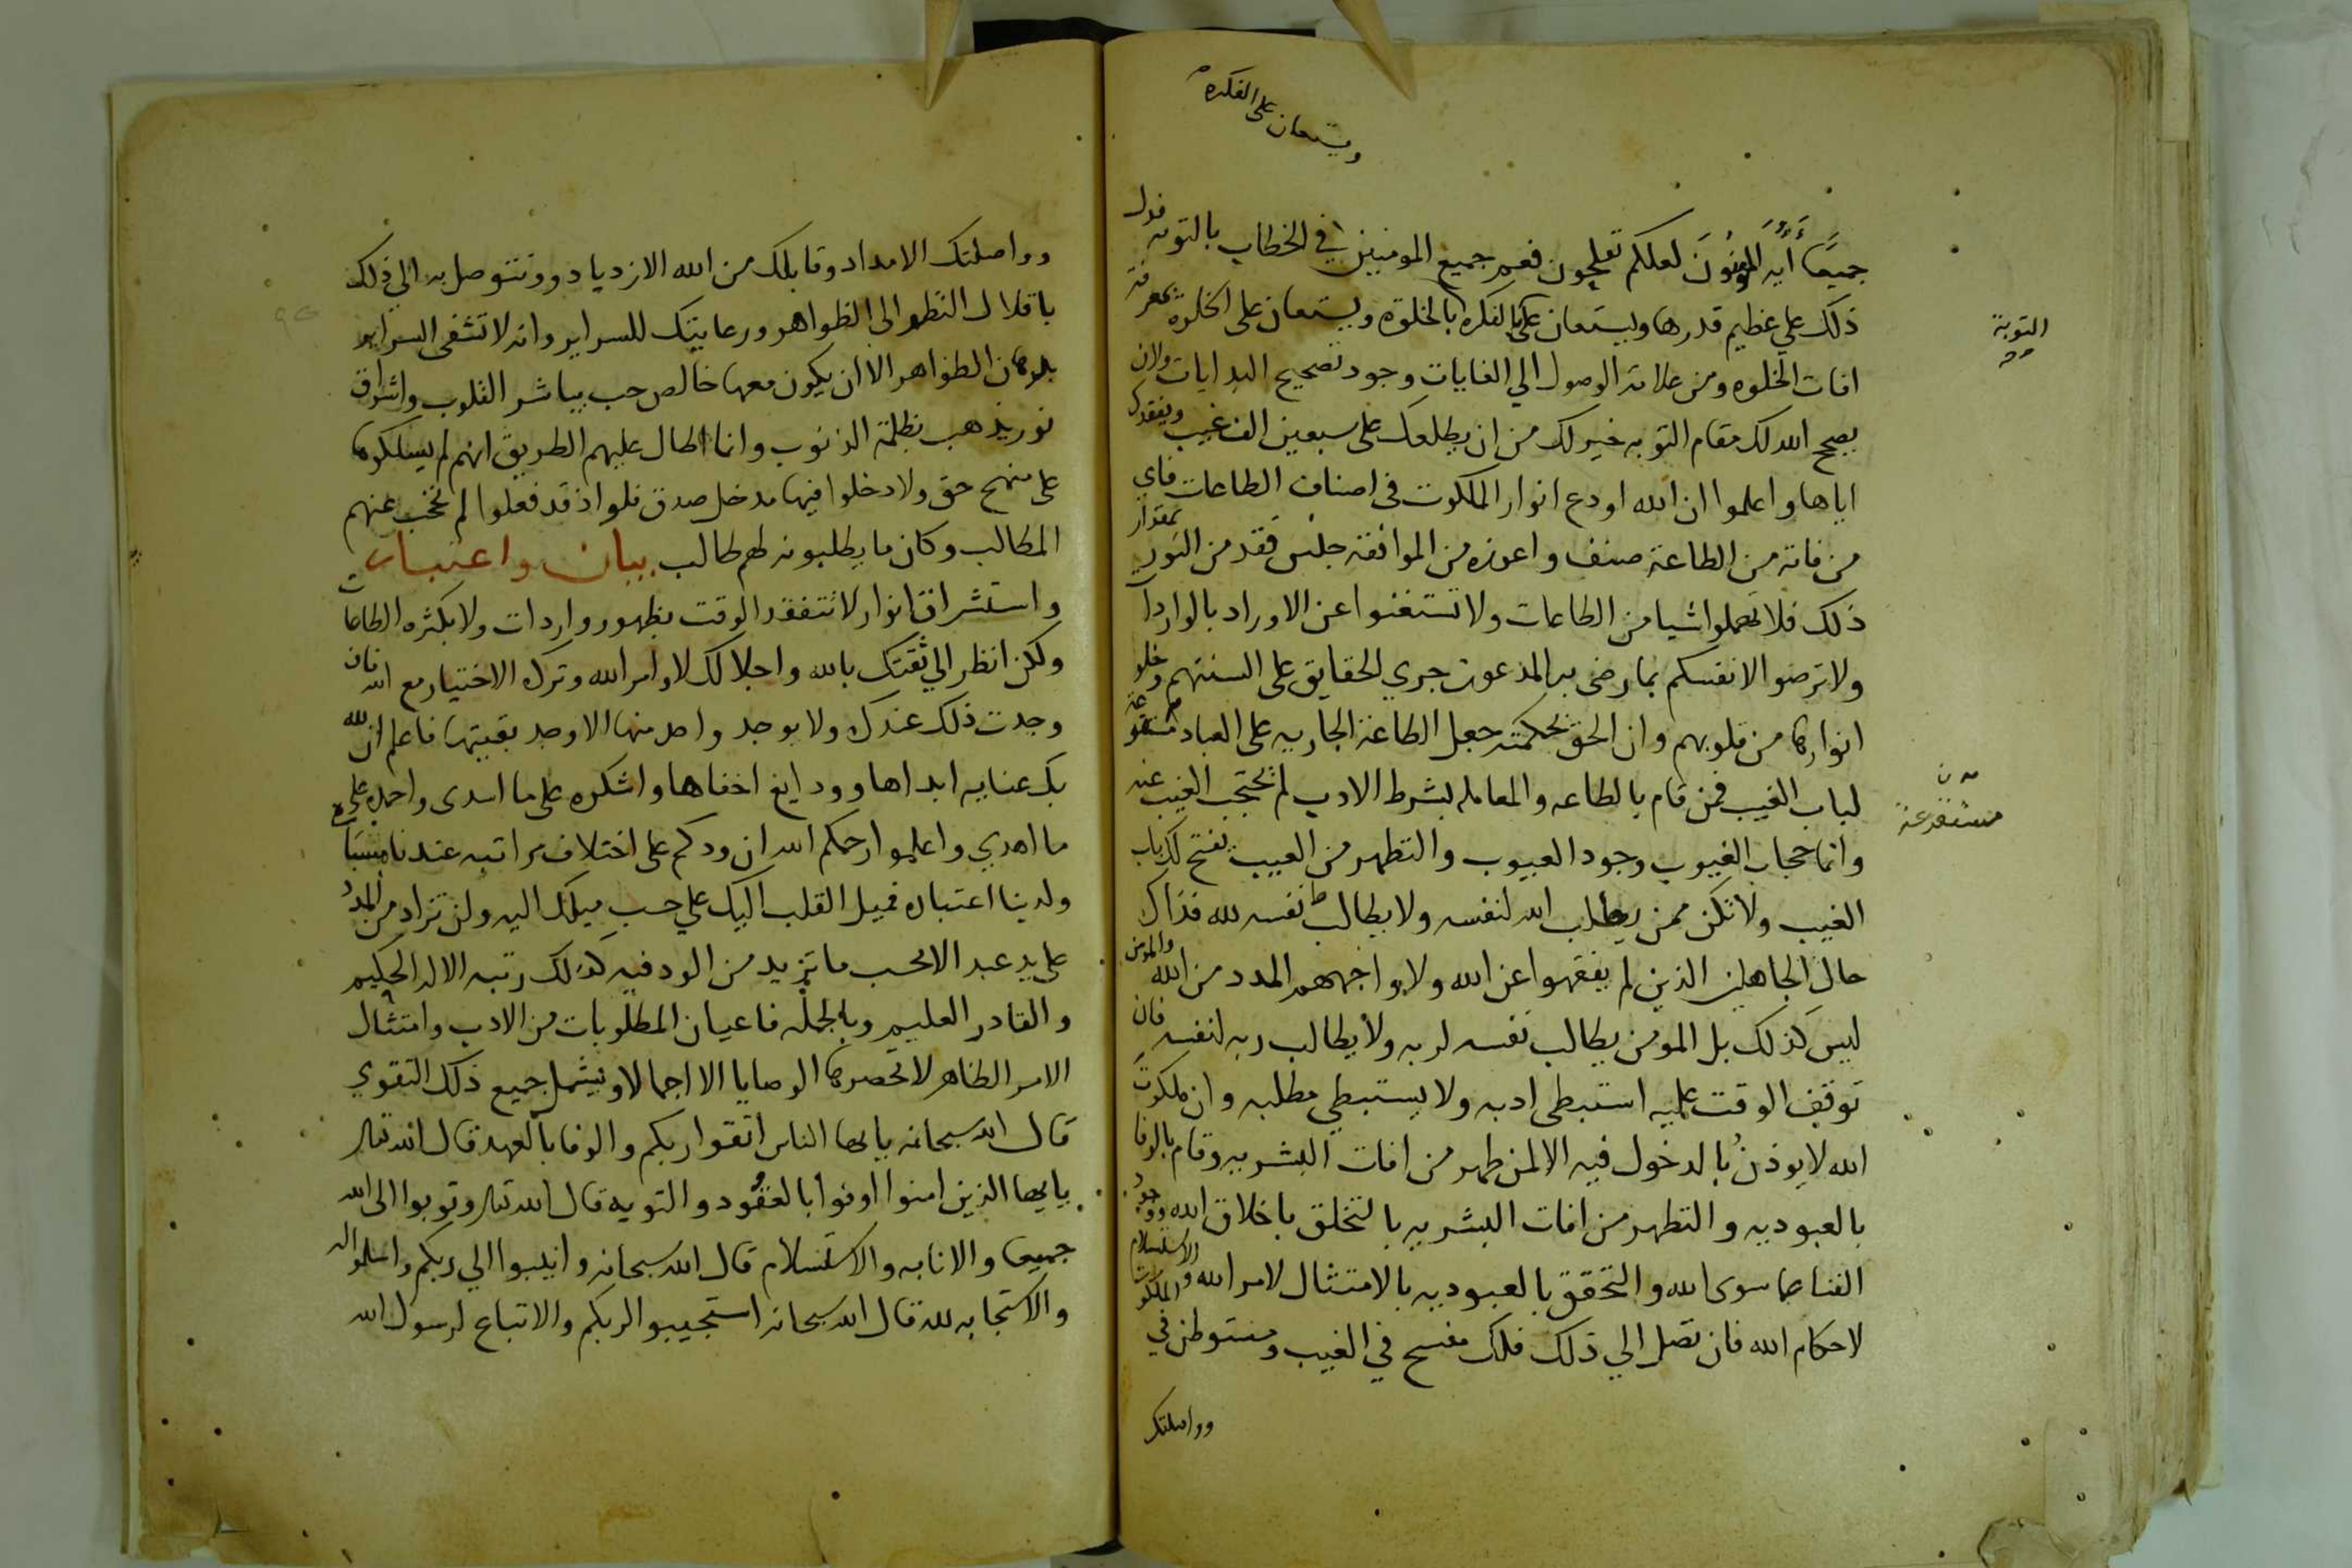 ويستعان على الفكره
جميعًا أيه المومنون لعلكم تفلحون فعم جميع المومنين في الخطاب بالتوبه فدل
ذلك علي عظيم قدرها ويستعان على الفكره بالخلوة ويستعان على الخلوة بمعرفة
افات الخلوه ومن علامة الوصول الي الغايات وجود تصحيح البدايات ولان
يصحح الله لك مقام التوبه خير لك من ان يطلعك على سبعين الف غيب ويفقدك
اياها واعلموا ان الله اودع انوار الملكوت في اصناف الطاعات فاي
من فاته من الطاعة صنف واعوزه من الموافقة جنس فقد من النور بمقدار
ذلك فلا تهملوا شيا من الطاعات ولا تستغنوا عن الاوراد بالواردات
ولا ترضوا لانفسكم بما رضى به المدعون جري الحقايق على السنتهم وخلو
انوارها من قلوبهم وان الحق بحكمته جعل الطاعة الجاريه على العباد مستقرعة
لباب الغيب فمن قام بالطاعه والمعامله بشرط الادب لم تحتجب الغيب عنه
وانما حجاب الغيوب وجود العيوب والتطهر من العيب تفتح لك باب
الغيب ولا تكن ممن يطالب الله لنفسه ولا يطالب نفسه لله فذاك
حال الجاهلين الذين لم يفقهوا عن الله ولا واجههم المدد من الله والمومن
ليس كذلك بل المومن يطالب نفسه لربه ولا يطالب ربه لنفسه فان
توقف الوقت عليه استبطى ادبه ولا يستبطي مطلبه وان ملكوت
الله لا يوذن بالدخول فيه الا لمن طهر من افات البشريه وقام بالوفا
بالعبوديه والتطهر من افات البشريه بالتخلق باخلاق الله ووجود
الفنا عما سوى الله والتحقق بالعبوديه بالامتثال لامر الله والاستسلام
لاحكام الله فان تصل الي ذلك فلك مفسح في الغيب ومستوطن في الملكوت
وواصلتك
التوبة
مستقرعة
وواصلتك الامداد وقابلك من الله الازدياد وتتوصل به الي ذلك
باقلال النظر الى الظواهر ورعايتك للسراير وانه لا تشفى السراير
الظواهر الا ان يكون معها خالص حب يباشر القلوب واشراق
نور يذهب بظلمة الذنوب وانما اطال عليهم الطريق انهم لم يسلكوها
على منهج حق ولا دخلوا فيها مدخل صدق فلو اذ قد فعلوا لم تحجب عنهم
المطالب وكان ما يطلبونه لهم طالب بيان واعتبار
واستشراق انوار لا تتفقد الوقت بظهور واردات ولا بكثره الطاعات
ولكن انظر الي ثقتك بالله واجلالك لاوامر الله وترك الاختيار مع الله فان
وجدت ذلك عندك ولا يوجد واحد منها الا وجد بقيتها فاعلم ان لله
بك عنايه ابداها وودايع اخفاها واشكره على ما اسدى واحمده على
ما اهدي واعلموا رحمكم الله ان ودكم على اختلاف مراتبه عندنا
ولدينا اعتباره فميل القلب اليك علي حسب ميلك اليه ولن تزاد من المدد
على يد عبد الا بحسب ما تزيد من الود فيه كذلك رتبه الاله الحكيم
والقادر العليم وبالجمله فاعيان المطلوبات من الادب وامتثال
الامر الظاهر لا تحصرها الوصايا الا اجمالا ويشمل جميع ذلك التقوي
قال الله سبحانه يايها الناس اتقوا ربكم والوفا بالعهد قال الله تعالى
يايها الذين امنوا اوفوا بالعقود والتوبه قال الله تعالى وتوبوا الى الله
جميعا والانابه والاستسلام قال الله سبحانه وانيبوا الي ربكم واسلموا له
والاستجابه لله قال الله سبحانه استجيبوا لربكم والاتباع لرسول الله